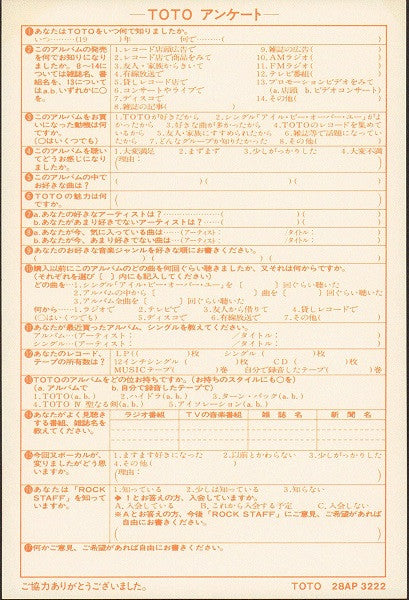 TOTO アンケート
①あなたはTOTOをいつ何で知りましたか。
いつ……(19　)年　何で……(　)
②このアルバムの発売を何でお知りになりましたか。8〜14については雑誌名、番組名を、13についてはa.b.いずれかに○を。
1.レコード店頭広告で
2.レコード店で商品をみて
3.友人・家族からきいて
4.有線放送で
5.貸しレコード店で
6.コンサートやライブで
7.ディスコで
8.雑誌の記事(　)
9.雑誌の広告(　)
10.AMラジオ(　)
11.FMラジオ(　)
12.テレビ番組(　)
13.プロモーションビデオをみて
(a.店頭 b.ビデオコンサート)
14.その他(　)
③このアルバムをお買いになった動機は何ですか。(○はいくつでも)
1.TOTOが好きだから　2.シングル「アイル・ビー・オーバー・ユー」がよ
かったから　3.好きな曲が多かったから　4.TOTOのレコードを集めて
いるから　5.友人・家族にすすめられたから　6.雑誌等で話題になってい
たから　7.どんなグループか知りたかった　8.その他(　)
④このアルバムを聴いてどうお感じになりましたか。
1.大変満足　2.まずまず　3.少しがっかりした　4.大変不満
(理由：　)
⑤このアルバムの中でお好きな曲は?
(　)(　)(　)
⑥TOTO の魅力は何ですか。
(　)
⑦a.あなたの好きなアーティストは?……(　)(　)
b.あなたがあまり好きでないアーティストは?……(　)(　)
⑧a.あなたが今、気に入っている曲は……(アーティスト：　/タイトル：　)
b.あなたが今、あまり好きでない曲は…(アーティスト：　/タイトル：　)
⑨あなたのお好きな音楽ジャンルを好きな順にお書きください。
(　)(　)(　)(　)
⑩購入以前にこのアルバムのどの曲を何回ぐらい聴きましたか。又それは何からですか。
(それぞれを選び〔　〕内にも記入してください)
どの曲を…1.シングル「アイル・ビー・オーバー・ユー」を〔　〕回ぐらい聴いた
2.アルバムの中から〔　〕曲を〔　〕回ぐらい聴いた
3.アルバム全曲を〔　〕回ぐらい聴いた
何から……1.ラジオで　2.テレビで　3.友人から借りて　4.貸しレコードで
(○はいくつでも)　5.ディスコで　6.有線放送で　7.その他(　)
⑪あなたが最近買ったアルバム、シングルを教えてください。
アルバム…(アーティスト：　/タイトル：　)
シングル…(アーティスト：　/タイトル：　)
⑫あなたのレコード、テープの所有数は?
LP((　)枚　シングル(　)枚
12インチシングル(　)枚　CD(　)枚
MUSICテープ(　)巻　自分で録音したテープ(　)巻
⑬TOTOのアルバムをどの位お持ちですか。(お持ちのスタイルにも○を)
(a.アルバムで　b.自分で録音したテープで)
1.TOTO(a.b.)　2.ハイドラ(a.b.)　3.ターン・バック(a.b.)
4.TOTO IV 聖なる剣(a.b.)　5.アイソレーション(a.b.)
⑭あなたがよく見聴きする番組、雑誌名を教えてください。
ラジオ番組　TVの音楽番組　雑誌名　新聞名
⑮今回ヌボーカルが、変りましたがどう思いますか。
1.ますます好きになった　2.以前とかわらない　3.少しがっかりした
4.その他(　)
(理由：　)
⑯あなたは「ROCK STAFF」を知っていますか。
1.知っている　2.少しは知っている　3.知らない
◆1とお答えの方、入会していますか。
A.入会している　B.これから入会する予定　C.入会しない
※Aとお答えの方、今後「ROCK STAFF」にご意見、ご希望があれば
自由にお書きください。
⑰何かご意見、ご希望があれば自由にお書きください。
ご協力ありがとうございました。
TOTO　28AP 3222